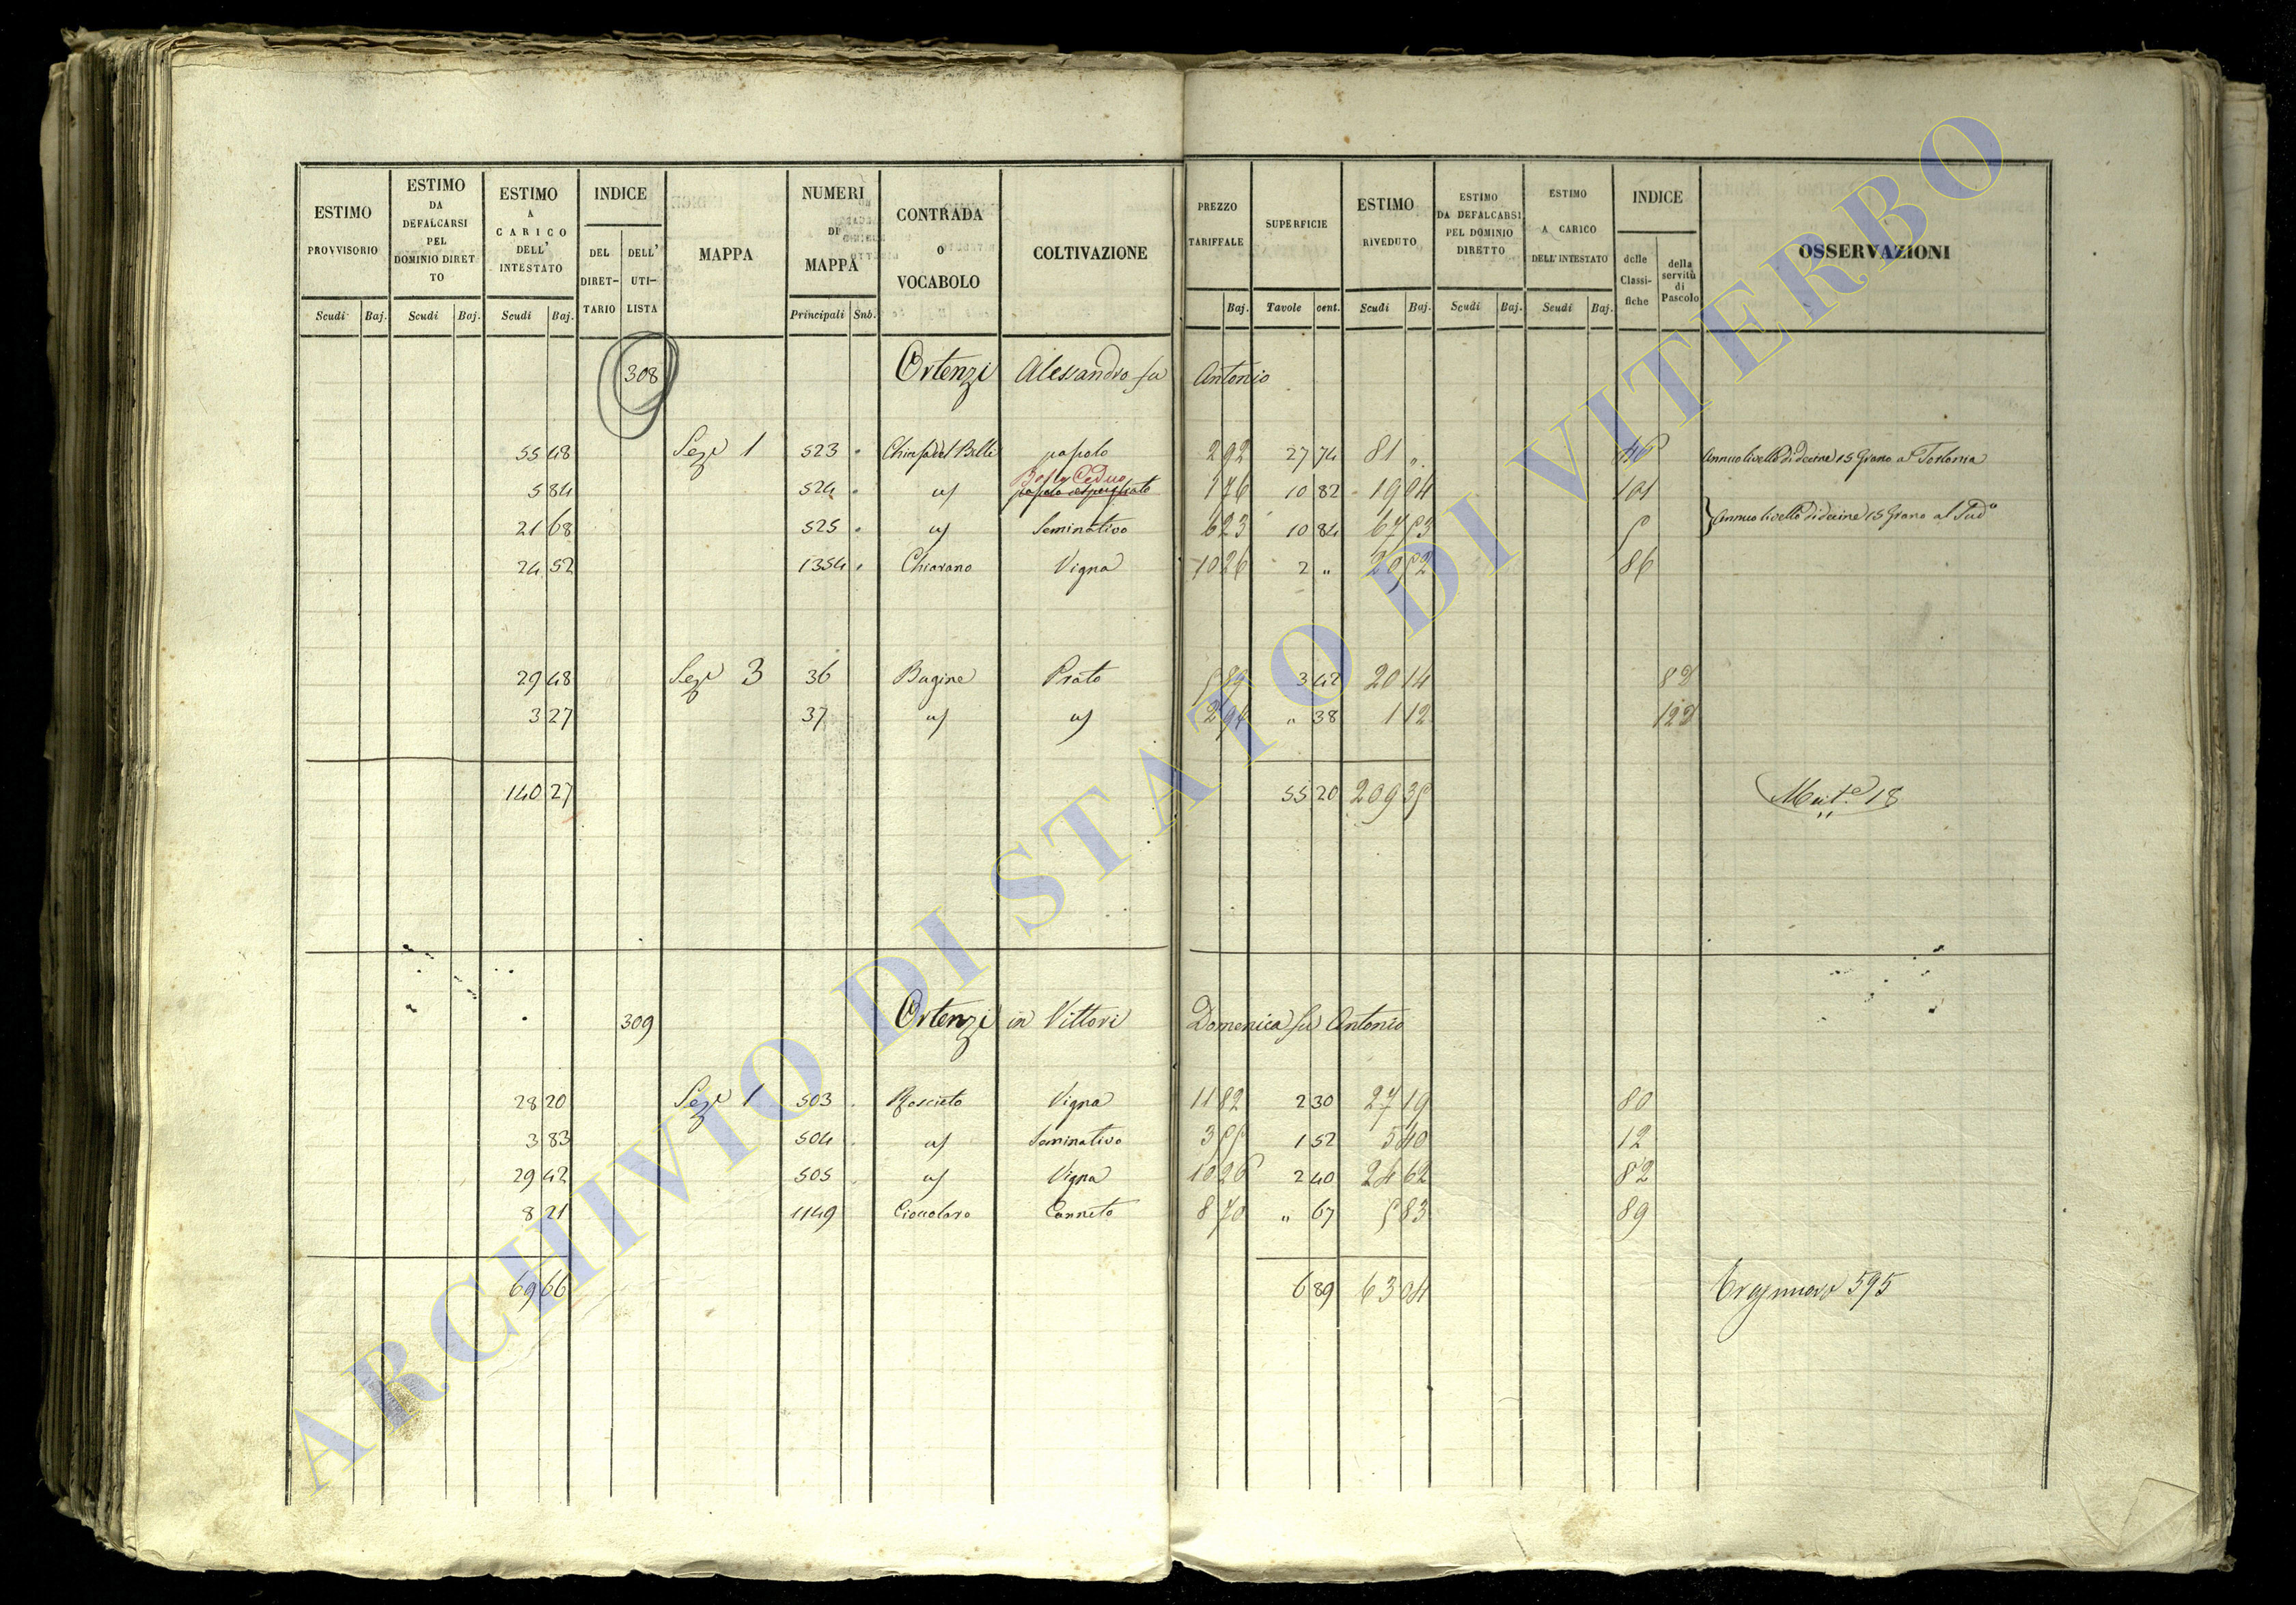 ESTIMO PROVVISORIO
ESTIMO DA DEFALCARSI PEL DOMINIO DIRETTO
ESTIMO A CARICO DELL' INTESTATO
INDICE
DEL DIRETTARIO
DELL' UTILISTA
MAPPA
NUMERI DI MAPPA
CONTRADA O VOCABOLO
COLTIVAZIONE
PREZZO TARIFFALE
SUPERFICIE
ESTIMO RIVEDUTO
ESTIMO DA DEFALCARSI PEL DOMINIO DIRETTO
ESTIMO A CARICO DELL' INTESTATO
INDICE
delle Classifiche
della servitù di Pascolo
OSSERVAZIONI
Scudi Baj. Scudi Baj. Scudi Baj. Principali Sub. Baj. Tavole cent. Scudi Baj. Scudi Baj. Scudi Baj.
308 Ortenzi Alessandro fu Antonio
55 48 Seze 1 523 pascolo 2 92 27 74 81 " Annuo livello di decine 15 Grano a Torlonia
Bosco Ceduo
5 84 524 1 76 10 82 19 04 101
21 68 525 Seminativo 6 23 10 84 67 53 5 Annuo livello di decine 15 Grano al Sudo
24 52 1354 Chiarano Vigna 10 26 2 " 20 52 86
29 48 Seze 3 36 Bagine Prato 5 89 3 42 20 14
3 27 37 2 94 " 38 1 12
140 27 55 20 209 35 18
309 Ortenzi in Vittori Domenica fu Antonio
28 20 Seze 1 503 Roscieto Vigna 11 82 2 30 27 19 80
3 83 504 Seminativo 3 55 1 52 5 40 12
29 42 505 Vigna 10 26 2 40 24 62 82
8 21 1149 Canneto 8 70 " 67 5 83 89
69 66 6 89 63 04 595
ARCHIVIO DI STATO DI VITERBO